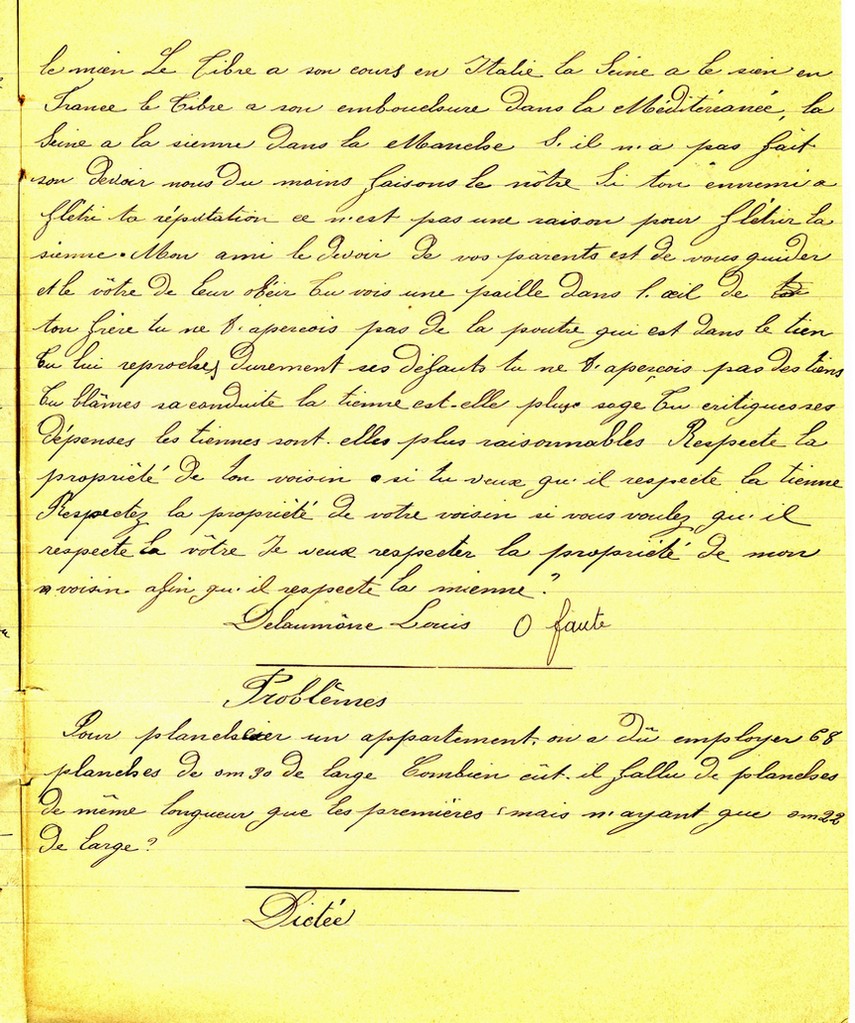 le mien Le Tibre a son cours en Italie la Seine a le sien en
France le Tibre a son embouchure dans la Méditéranée, la
Seine a la sienne dans la Manche S'il n'a pas fait
son devoir nous du moins faisons le nôtre Si ton ennemi a
flétri ta réputation ce n'est pas une raison pour flétrir la
sienne. Mon ami le devoir de vos parents est de vous guider
et le vôtre de leur obéir Tu vois une paille dans l'œil de
ton frère tu ne t'apercois pas de la poutre qui est dans le tien
Tu lui reproches durement ses défauts tu ne t'aperçois pas des tiens
Tu blâmes sa conduite la tienne est-elle plus sage Tu critiques ses
dépenses les tiennes sont-elles plus raisonnables Respecte la
propriété de ton voisin si tu veux qu'il respecte la tienne
Respectez la propriété de votre voisin si vous voulez qu'il
respecte la vôtre Je veux respecter la propriété de mon
voisin afin qu'il respecte la mienne?
Delaumône Louis 0 faute
Problèmes
Pour plancheier un appartement, on a dû employer 68
planches de 0m30 de large Combien eût-il fallu de planches
de même longueur que les premières mais n'ayant que 0m22
de large?
Dictée